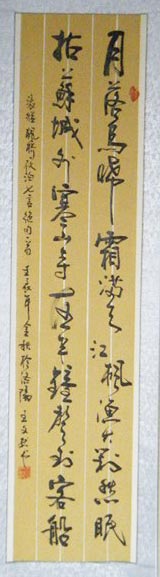 月落烏啼霜滿天江楓漁火對愁眠
姑蘇城外寒山寺夜半鐘聲到客船
張繼楓橋夜泊七言絕句一首